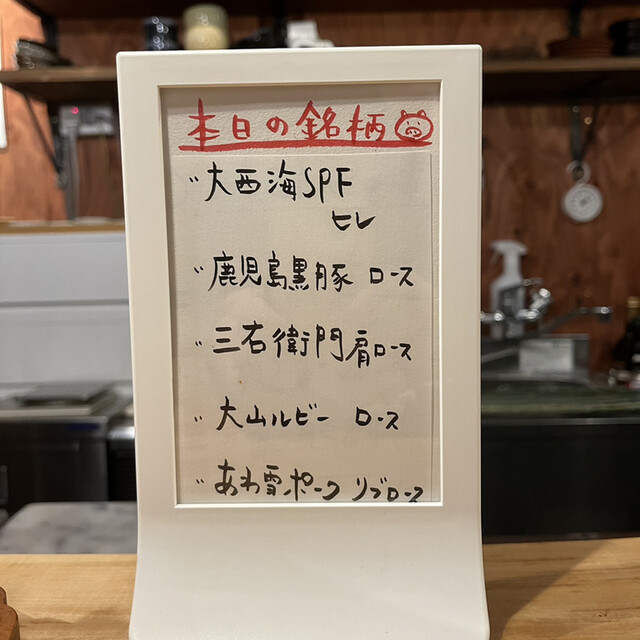 本日の銘柄
〃大西海SPF
ヒレ
〃鹿児島黒豚 ロース
〃三右衛門肩ロース
〃大山ルビー ロース
〃あわ雪ポーク リブロース